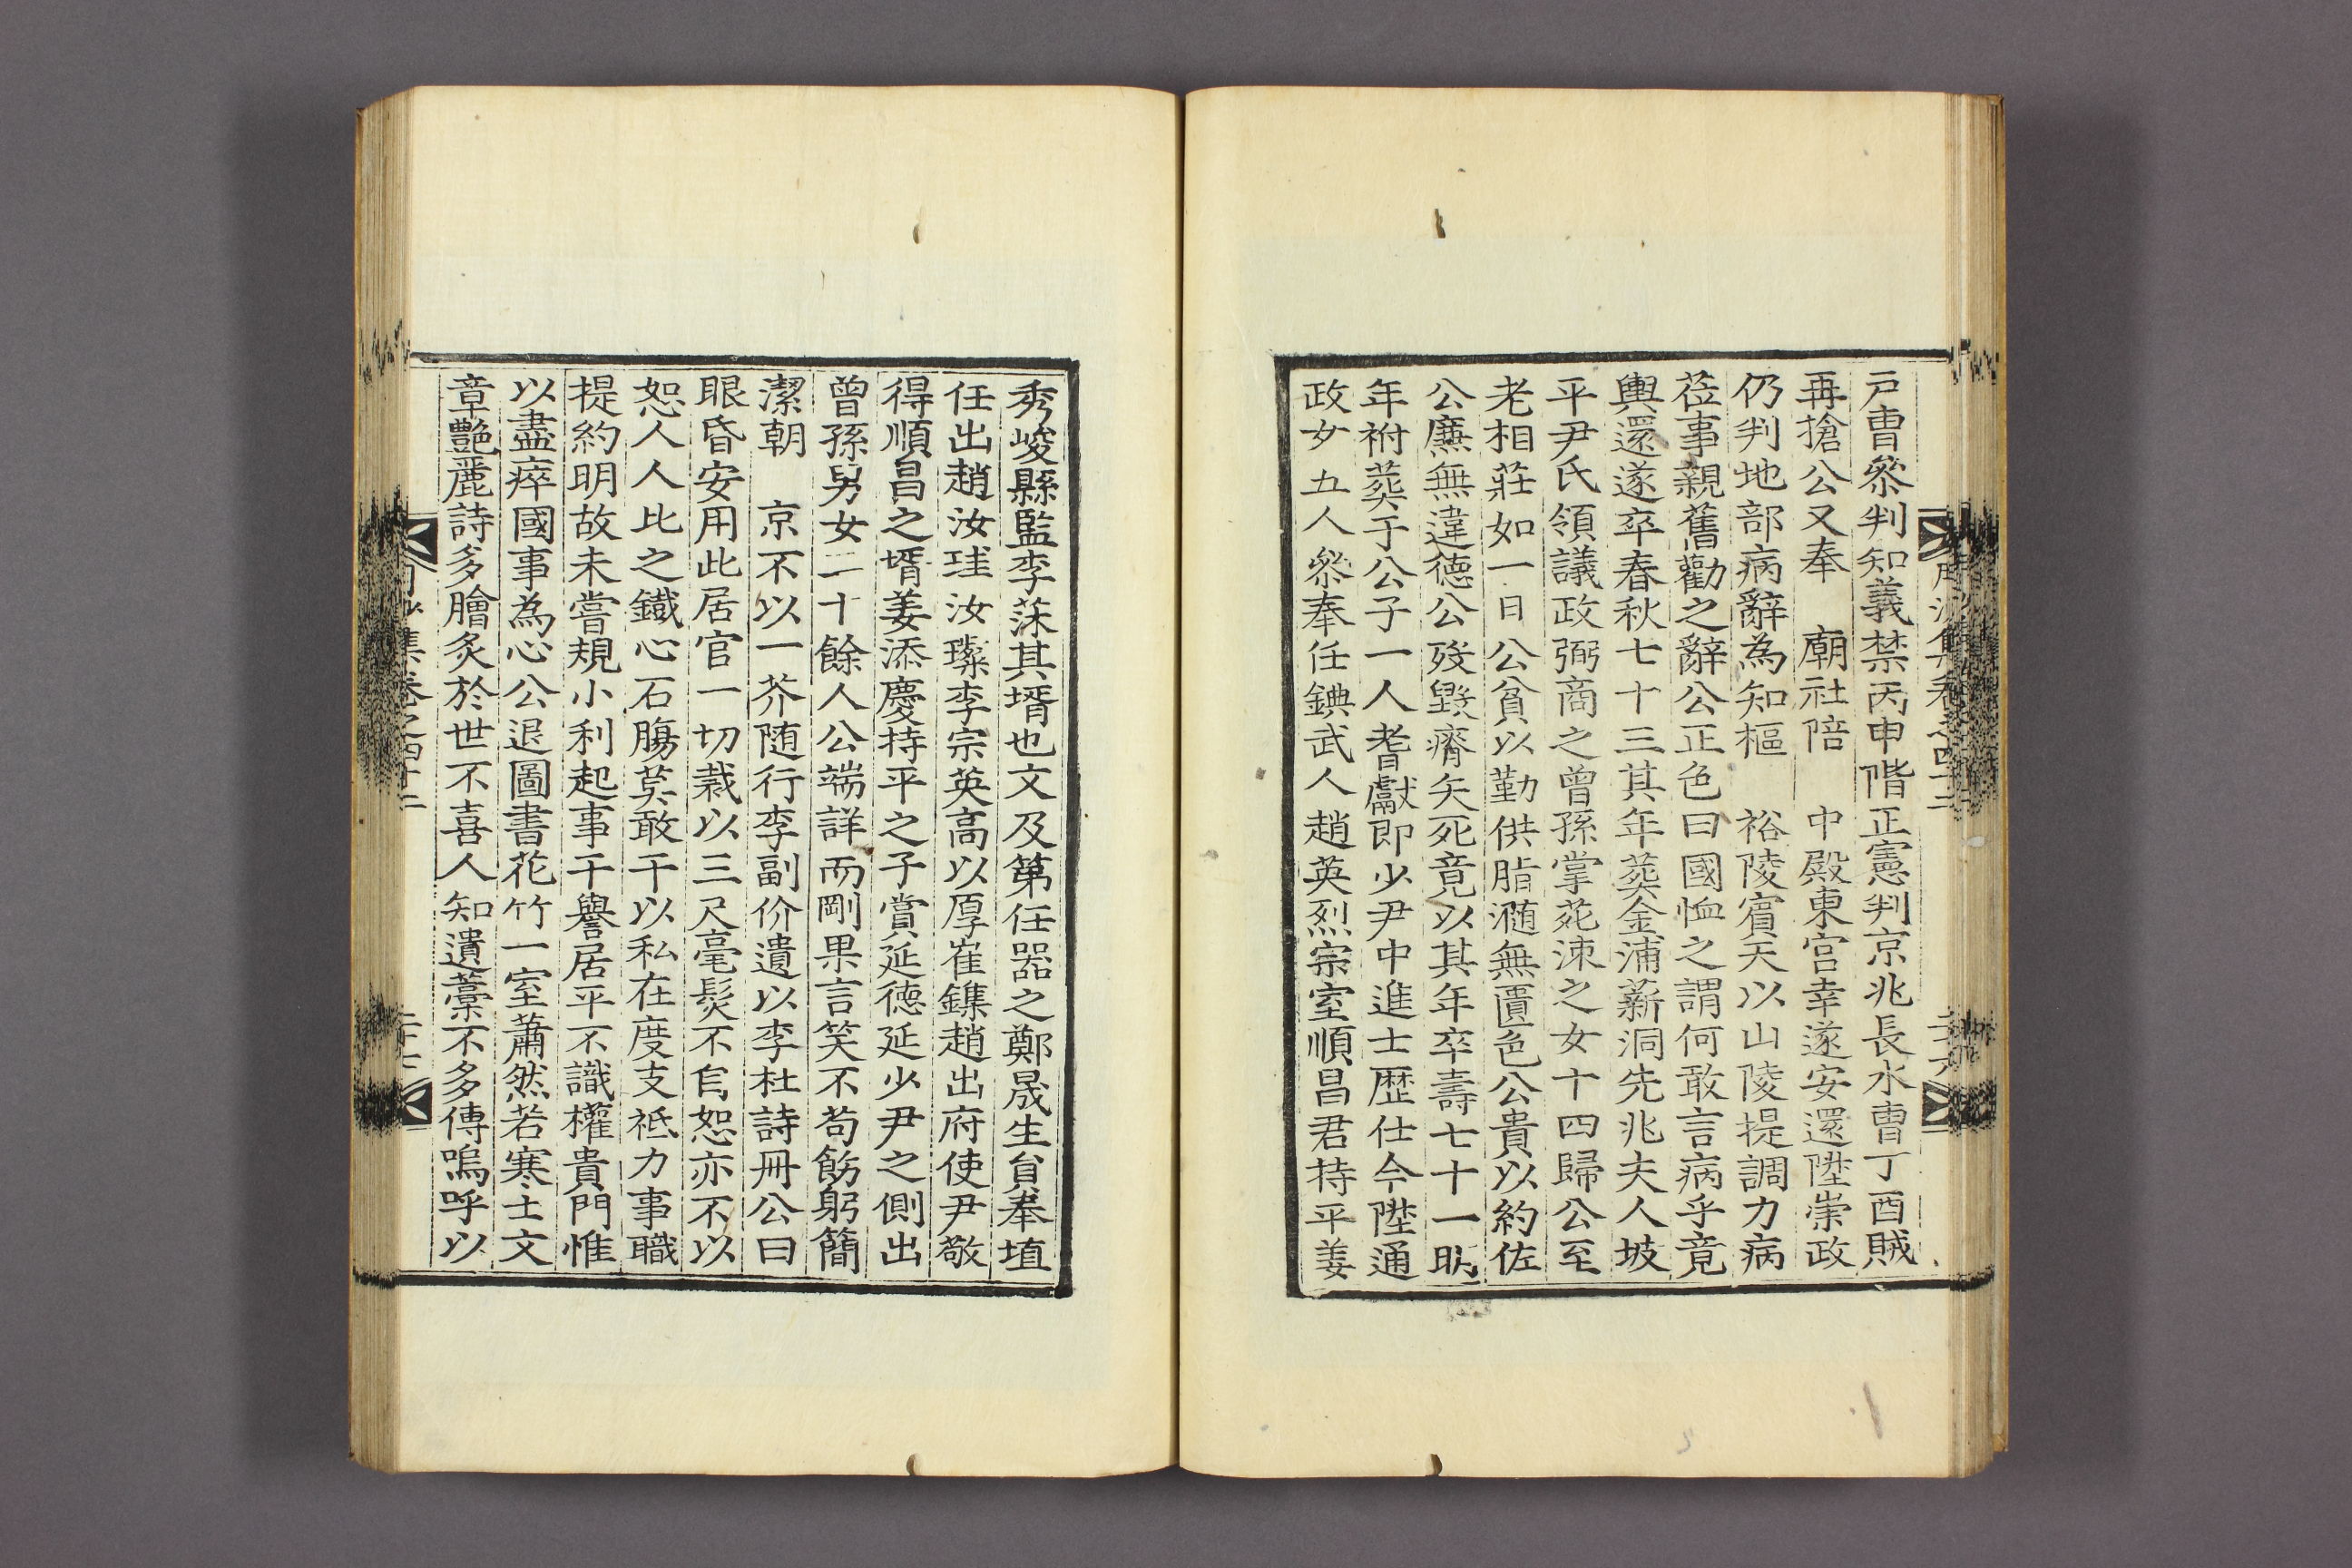 戶曹叅判知義禁丙申階正憲判京兆長水曹丁酉賊
再搶公又奉　廟社陪　中殿東宮幸遂安還陞崇政
仍判地部病辭為知樞　裕陵賓天以山陵提調力病
莅事親舊勸之辭公正色曰國恤之謂何敢言病乎竟
輿還遂卒春秋七十三其年葬金浦薪洞先兆夫人坡
平尹氏領議政弼商之曾孫掌苑涑之女十四歸公至
老相莊如一日公貧以勤供脂瀡無匱色公貴以約佐
公廉無違德公歿毀瘠矢死竟以其年卒壽七十一明
年祔葬于公子一人耆獻即少尹中進士歷仕今陞通
政女五人叅奉任錪武人趙英烈宗室順昌君持平姜
秀峻縣監李莯其壻也文及第任器之鄭晟生貟奉埴
任出趙汝珪汝璨李宗英高以厚崔鏶趙出府使尹敬
得順昌之壻姜添慶持平之子賞延德延少尹之側出
曾孫男女二十餘人公端詳而剛果言笑不苟飭躬簡
潔朝　京不以一芥随行李副价遺以李杜詩冊公曰
眼昏安用此居官一切裁以三尺毫髮不自恕亦不以
恕人人比之鐵心石膓莫敢干以私在度支祗力事職
提約明故未嘗規小利起事干譽居平不識權貴門惟
以盡瘁國事為心公退圖書花竹一室蕭然若寒士文
章艶麗詩多膾炙於世不喜人知遺藁不多傳嗚呼以
集卷之四十二